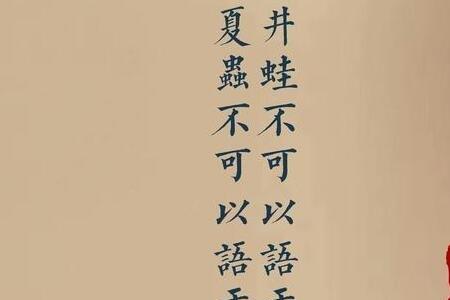 井蛙不可以語
夏蟲不可以語